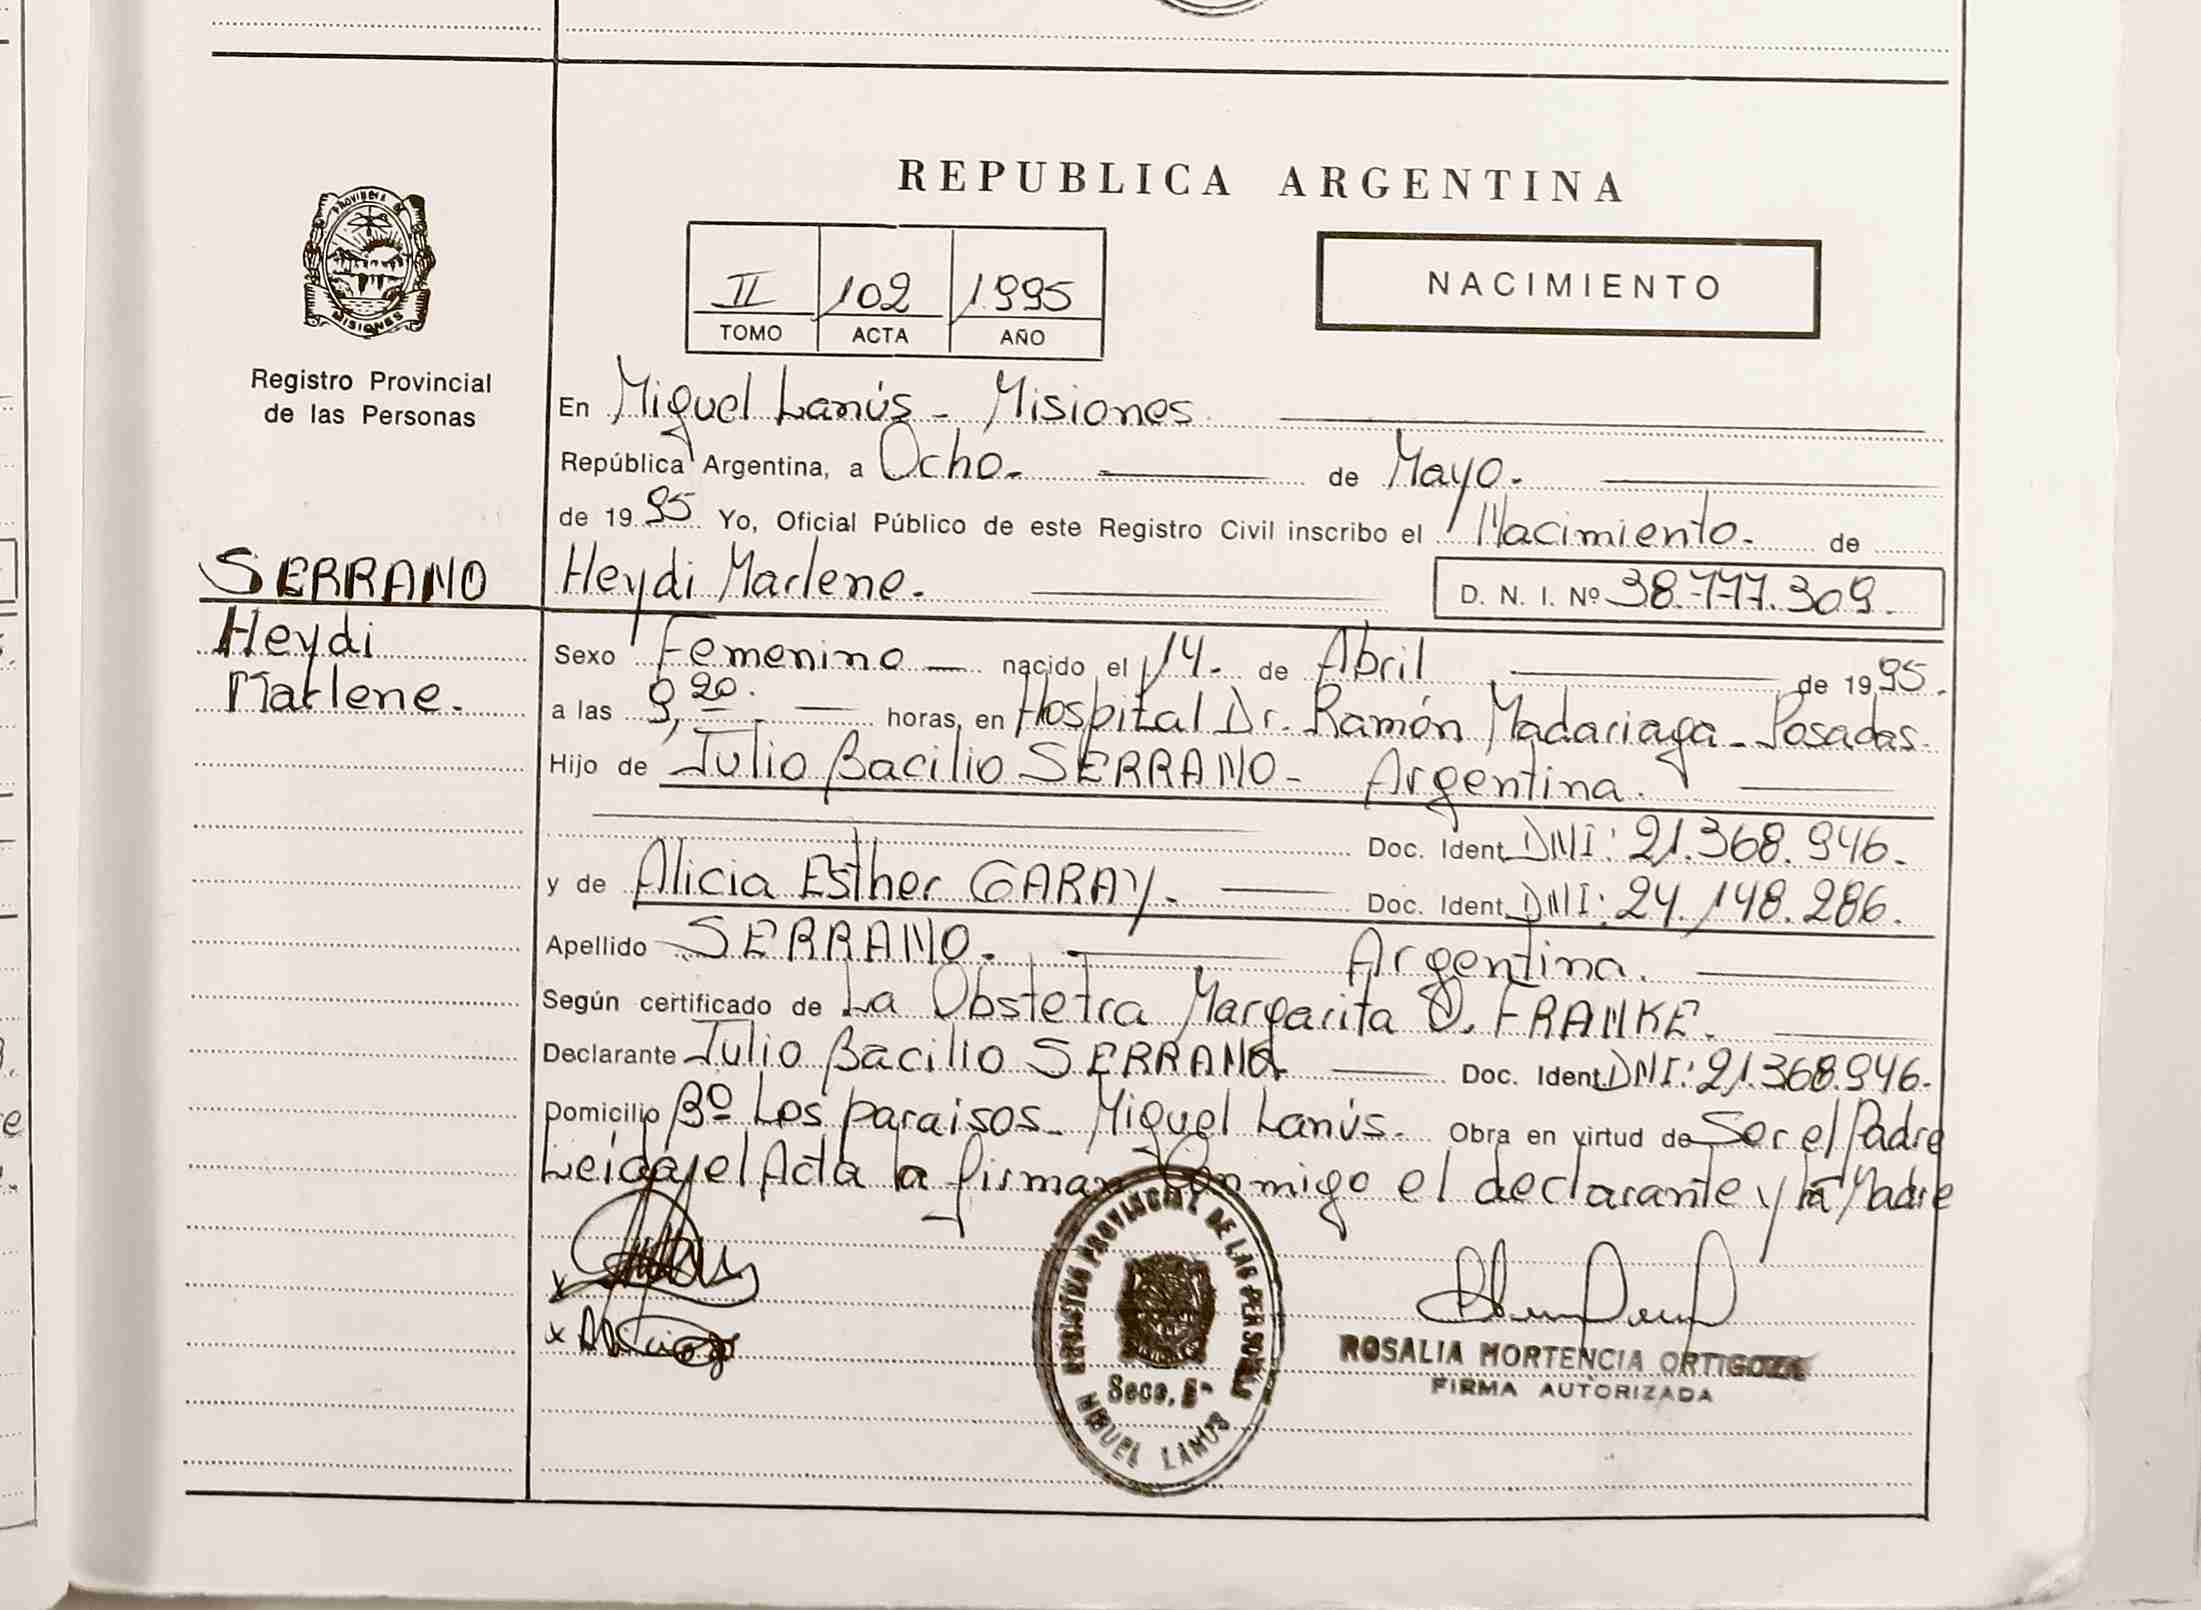 REPUBLICA ARGENTINA
PROVINCIA DE
MISIONES
Registro Provincial
de las Personas
II 102 1995
TOMO ACTA AÑO
NACIMIENTO
En Miguel Lanús - Misiones.
República Argentina, a Ocho. de Mayo.
de 19 95 Yo, Oficial Público de este Registro Civil inscribo el Nacimiento. de
SERRANO
Heydi
Marlene.
Heydi Marlene. D. N. I. Nº 38.777.309.
Sexo Femenino nacido el 14. de Abril de 19 95.
a las 9,20. horas, en Hospital Dr. Ramón Madariaga - Posadas.
Hijo de Julio Bacilio SERRANO - Argentina.
Doc. Ident. DNI: 21.368.946.
y de Alicia Esther GARAY. Doc. Ident. DNI: 24.148.286.
Apellido SERRANO. Argentina.
Según certificado de La Obstetra Margarita O. FRANKE.
Declarante Julio Bacilio SERRANO Doc. Ident. DNI: 21.368.946.
Domicilio Bº Los paraisos - Miguel Lanús. Obra en virtud de Ser el Padre
Leida el Acta la firman Conmigo el declarante y la Madre
x
x
REGISTRO PROVINCIAL DE LAS PERSONAS
Secc. Eª
MIGUEL LANUS
ROSALIA HORTENCIA ORTIGOZA
FIRMA AUTORIZADA